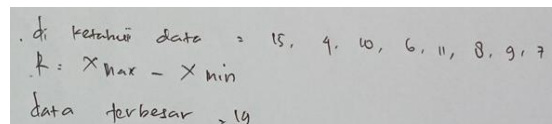 . di ketahui data = 15, 4, 10, 6, 11, 8, 9, 7
R = X max - X min
data terbesar = 19